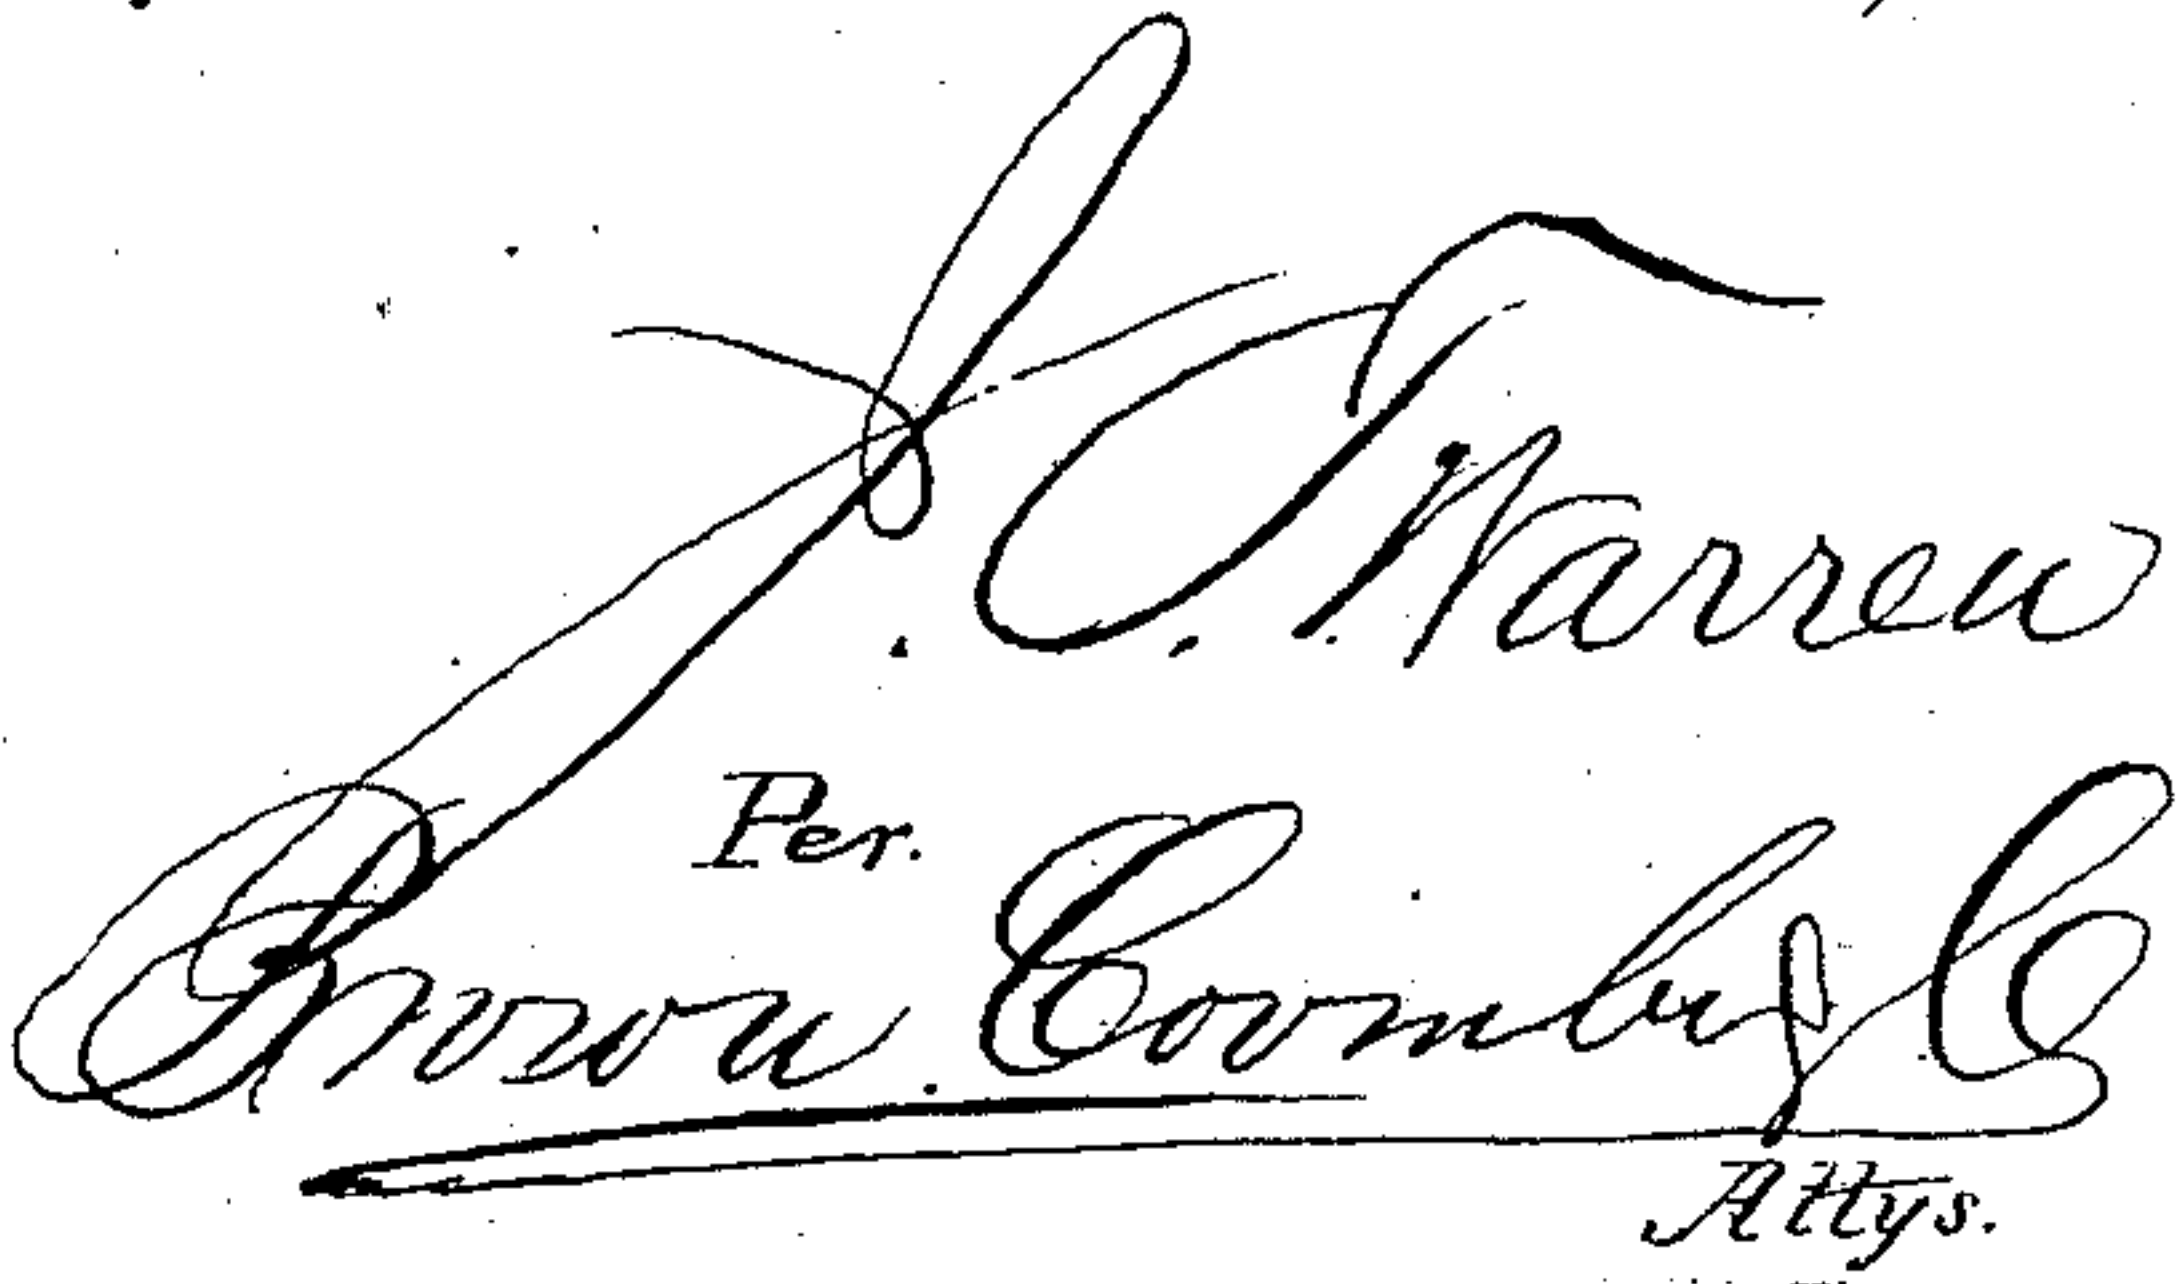 J. T. Warren
Per.
Brown. Coombs & Co
Attys.